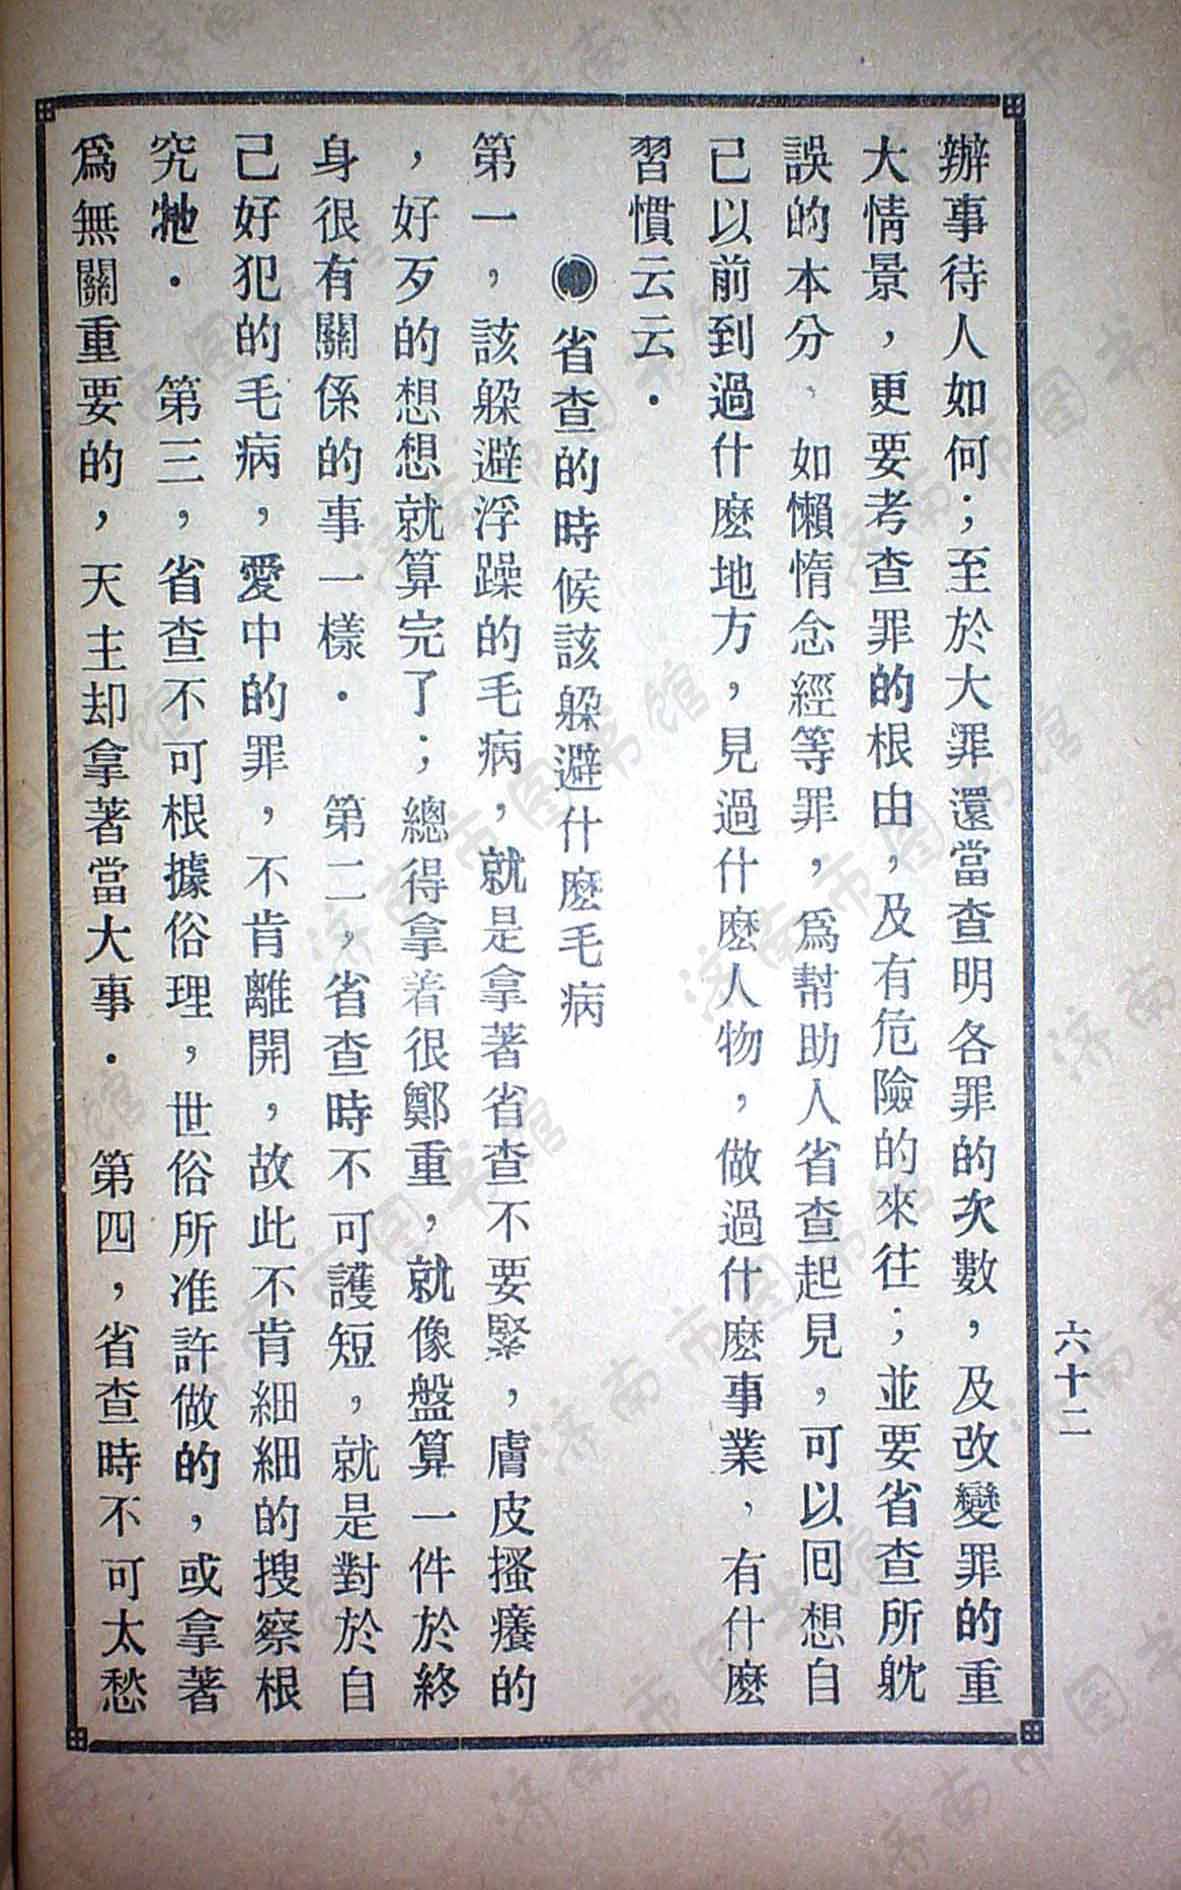 六十二
辦事待人如何；至於大罪還當查明各罪的次數，及改變罪的重
大情景，更要考查罪的根由，及有危險的來往；並要省查所躭
誤的本分、如懶惰念經等罪，爲幫助人省查起見，可以囘想自
己以前到過什麽地方，見過什麽人物，做過什麽事業，有什麽
習慣云云．
◉省查的時候該躱避什麽毛病
第一，該躱避浮躁的毛病，就是拿著省查不要緊，膚皮搔癢的
，好歹的想想就算完了；總得拿着很鄭重，就像盤算一件於終
身很有關係的事一樣．　第二，省查時不可護短，就是對於自
己好犯的毛病，愛中的罪，不肯離開，故此不肯細細的搜察根
究牠．　第三，省查不可根據俗理，世俗所准許做的，或拿著
爲無關重要的，天主却拿著當大事．　第四，省查時不可太愁
济南市图书馆